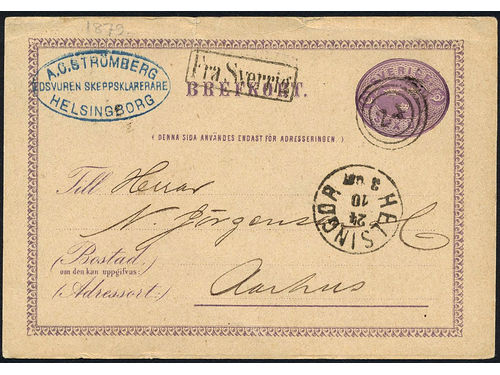 1879
A.C. STRÖMBERG
EDSVUREN SKEPPSKLARERARE
HELSINGBORG
Fra Sverrig
BREFKORT.
SVERIGE
(DENNA SIDA ANVÄNDES ENDAST FÖR ADRESSERINGEN.)
Till Herrar
N. Jörgensen & C
HELSINGÖR
24
10
3
(Bostad:
om den kan uppgifvas:
(Adressort:)
Aarhus